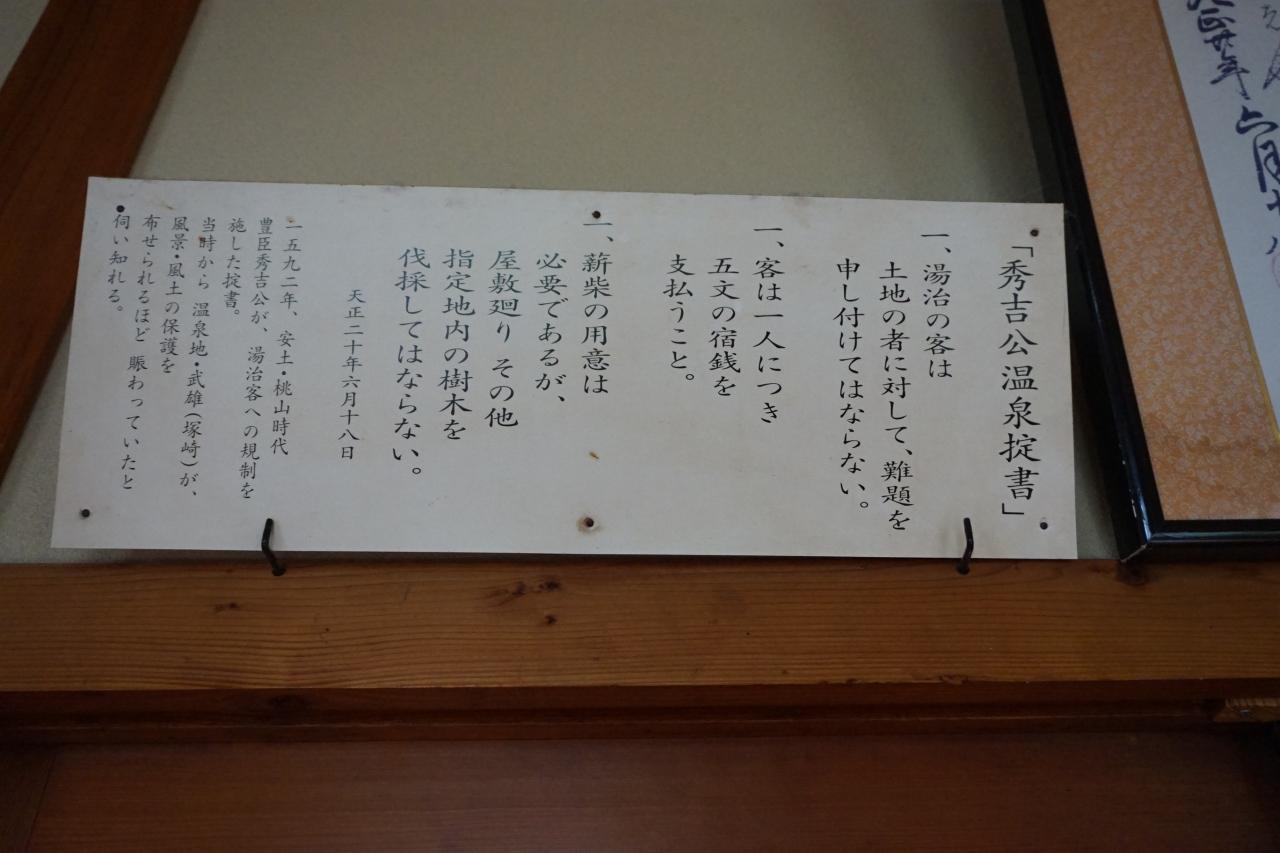 天正廿年六月十八
「秀吉公温泉掟書」
一、湯治の客は
土地の者に対して、難題を
申し付けてはならない。
一、客は一人につき
五文の宿銭を
支払うこと。
一、薪柴の用意は
必要であるが、
屋敷廻り その他
指定地内の樹木を
伐採してはならない。
天正二十年六月十八日
一五九二年、安土・桃山時代
豊臣秀吉公が、湯治客への規制を
施した掟書。
当時から 温泉地・武雄(塚崎)が、
風景・風土の保護を
布せられるほど 賑わっていたと
伺い知れる。